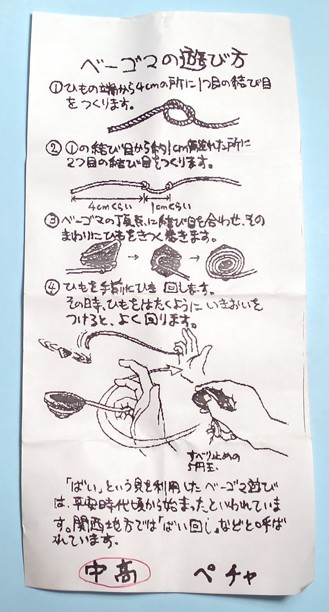 ベーゴマの遊び方
①ひもの端から4cmの所に1つ目の結び目
をつくります。
②①の結び目から約1cm離れた所に
2つ目の結び目をつくります。
4cmくらい 1cmくらい
③ベーゴマの頂点に結び目を合わせ、その
まわりにひもをきつく巻きます。
④ひもを手前にひき回します。
その時、ひもをはたくようにいきおいを
つけると、よく回ります。
すべり止めの
5円玉
「ばい」という貝を利用したベーゴマ遊び
は、平安時代頃から始まったといわれていま
す。関西地方では「ばい回し」などと呼ば
れています。
中高 ペチャ